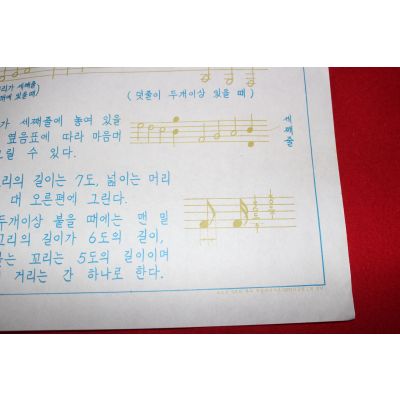 리가 세째줄
에 있을때)
(덧줄이 두개이상 있을 때)
가 세째줄에 놓여 있을
옆음표에 따라 마음며
릴 수 있다.
세째줄
리의 길이는 7도, 넓이는 머리
대 오른편에 그린다.
두개이상 붙을 때에는 맨 밑
꼬리의 길이가 6도의 길이,
는 꼬리는 5도의 길이이며
거리는 간 하나로 한다.